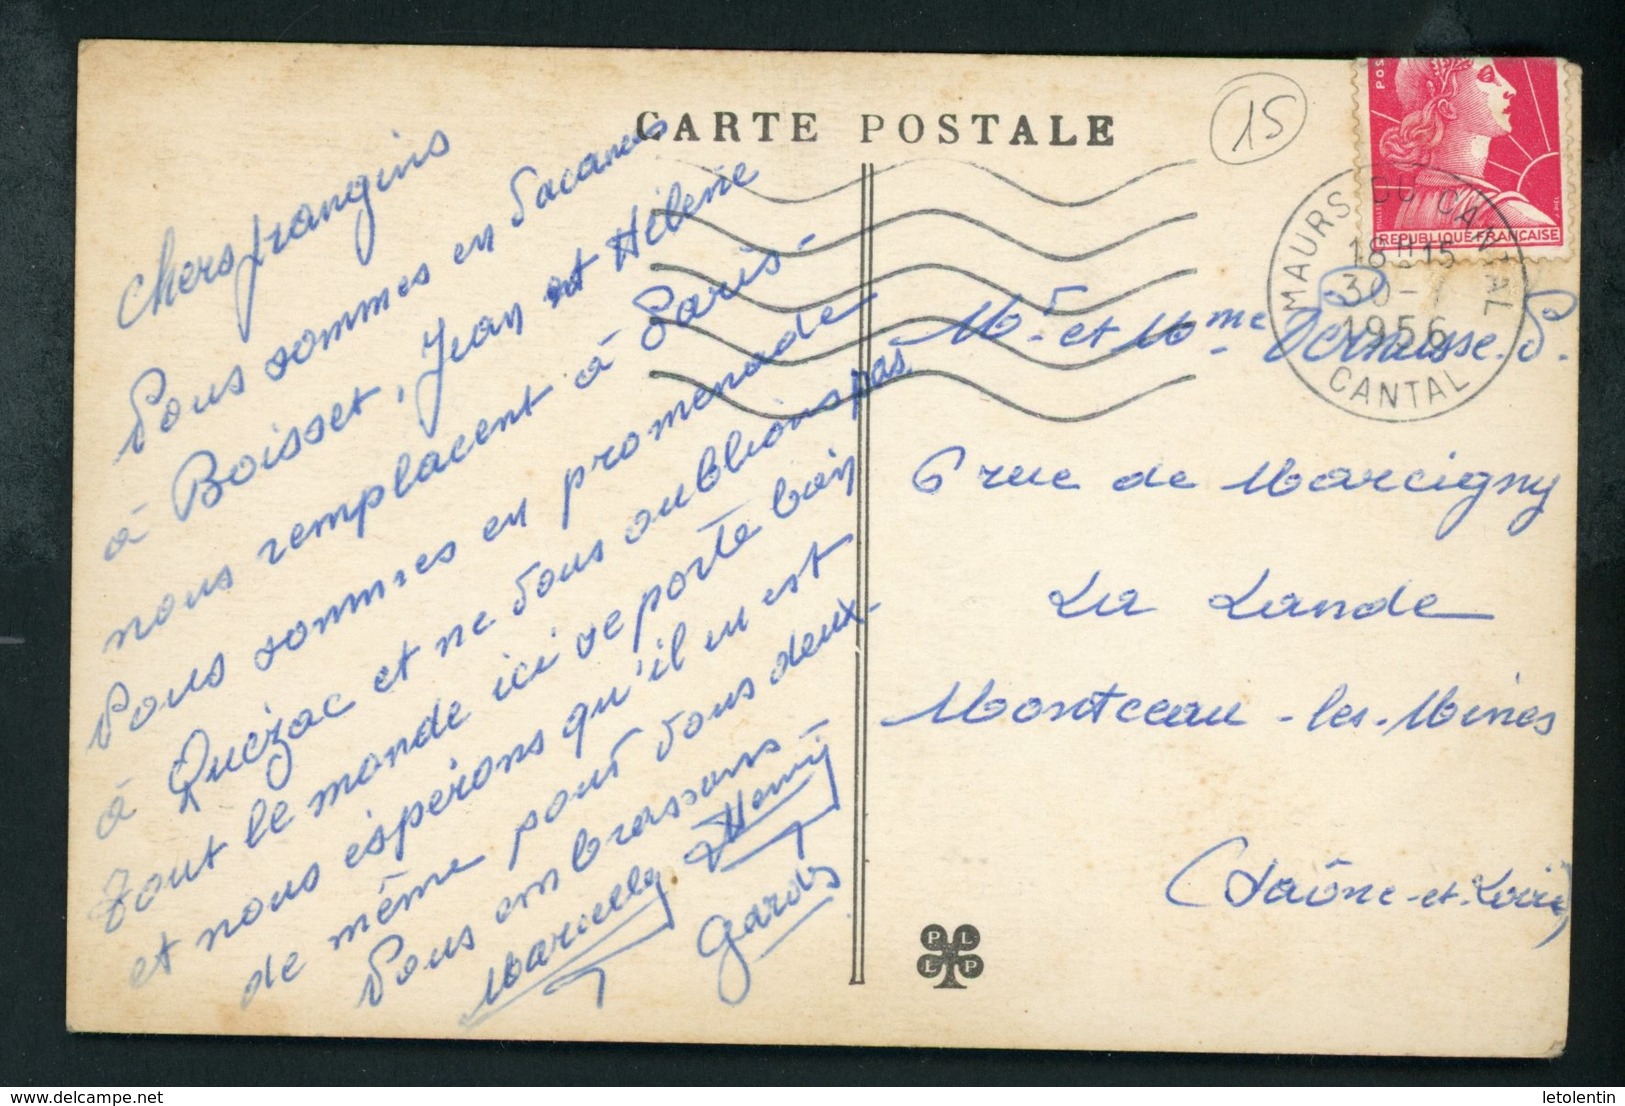 CARTE POSTALE
15
POS
REPUBLIQUE FRANÇAISE
MAURS DU CANTAL
18H15
30-7
1956
CANTAL
Chers frangins
Nous sommes en vacances
à Boisset, Jean et Hélène
nous remplacent à Paris
Nous sommes en promenade
à Quézac et ne vous oublions pas
Tout le monde ici se porte bien
et nous espérons qu'il en est
de même pour vous deux.
Nous embrassons -
Marcelle Henri
Gardes
Mr et Mme
6 rue de Marcigny
La Lande
Montceau-les-Mines
(Saône-et-Loire)
PLLP
delcampe.net
letolentin